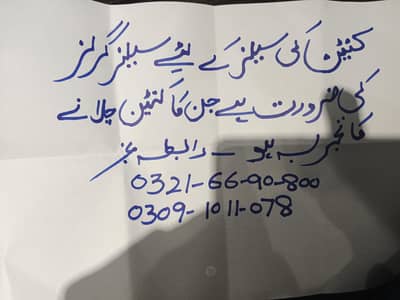 کنٹین کی سیلز کے لیے سیلز گرلز
کی ضرورت ہے جن کا کنٹین چلانے
کا تجربہ ہو ۔ رابطہ نمبر
0321-66-90-800
0309-1011-078